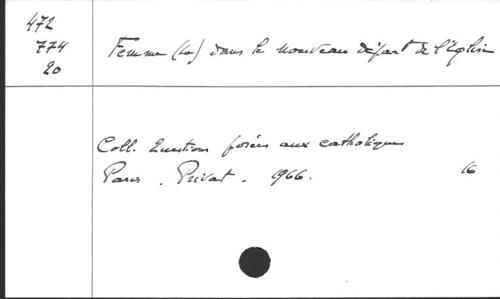 472
774
20
Femme (La) dans le nouveau départ de l'Eglise
Coll. Questions posées aux catholiques
Paris. Privat. 1966. 16